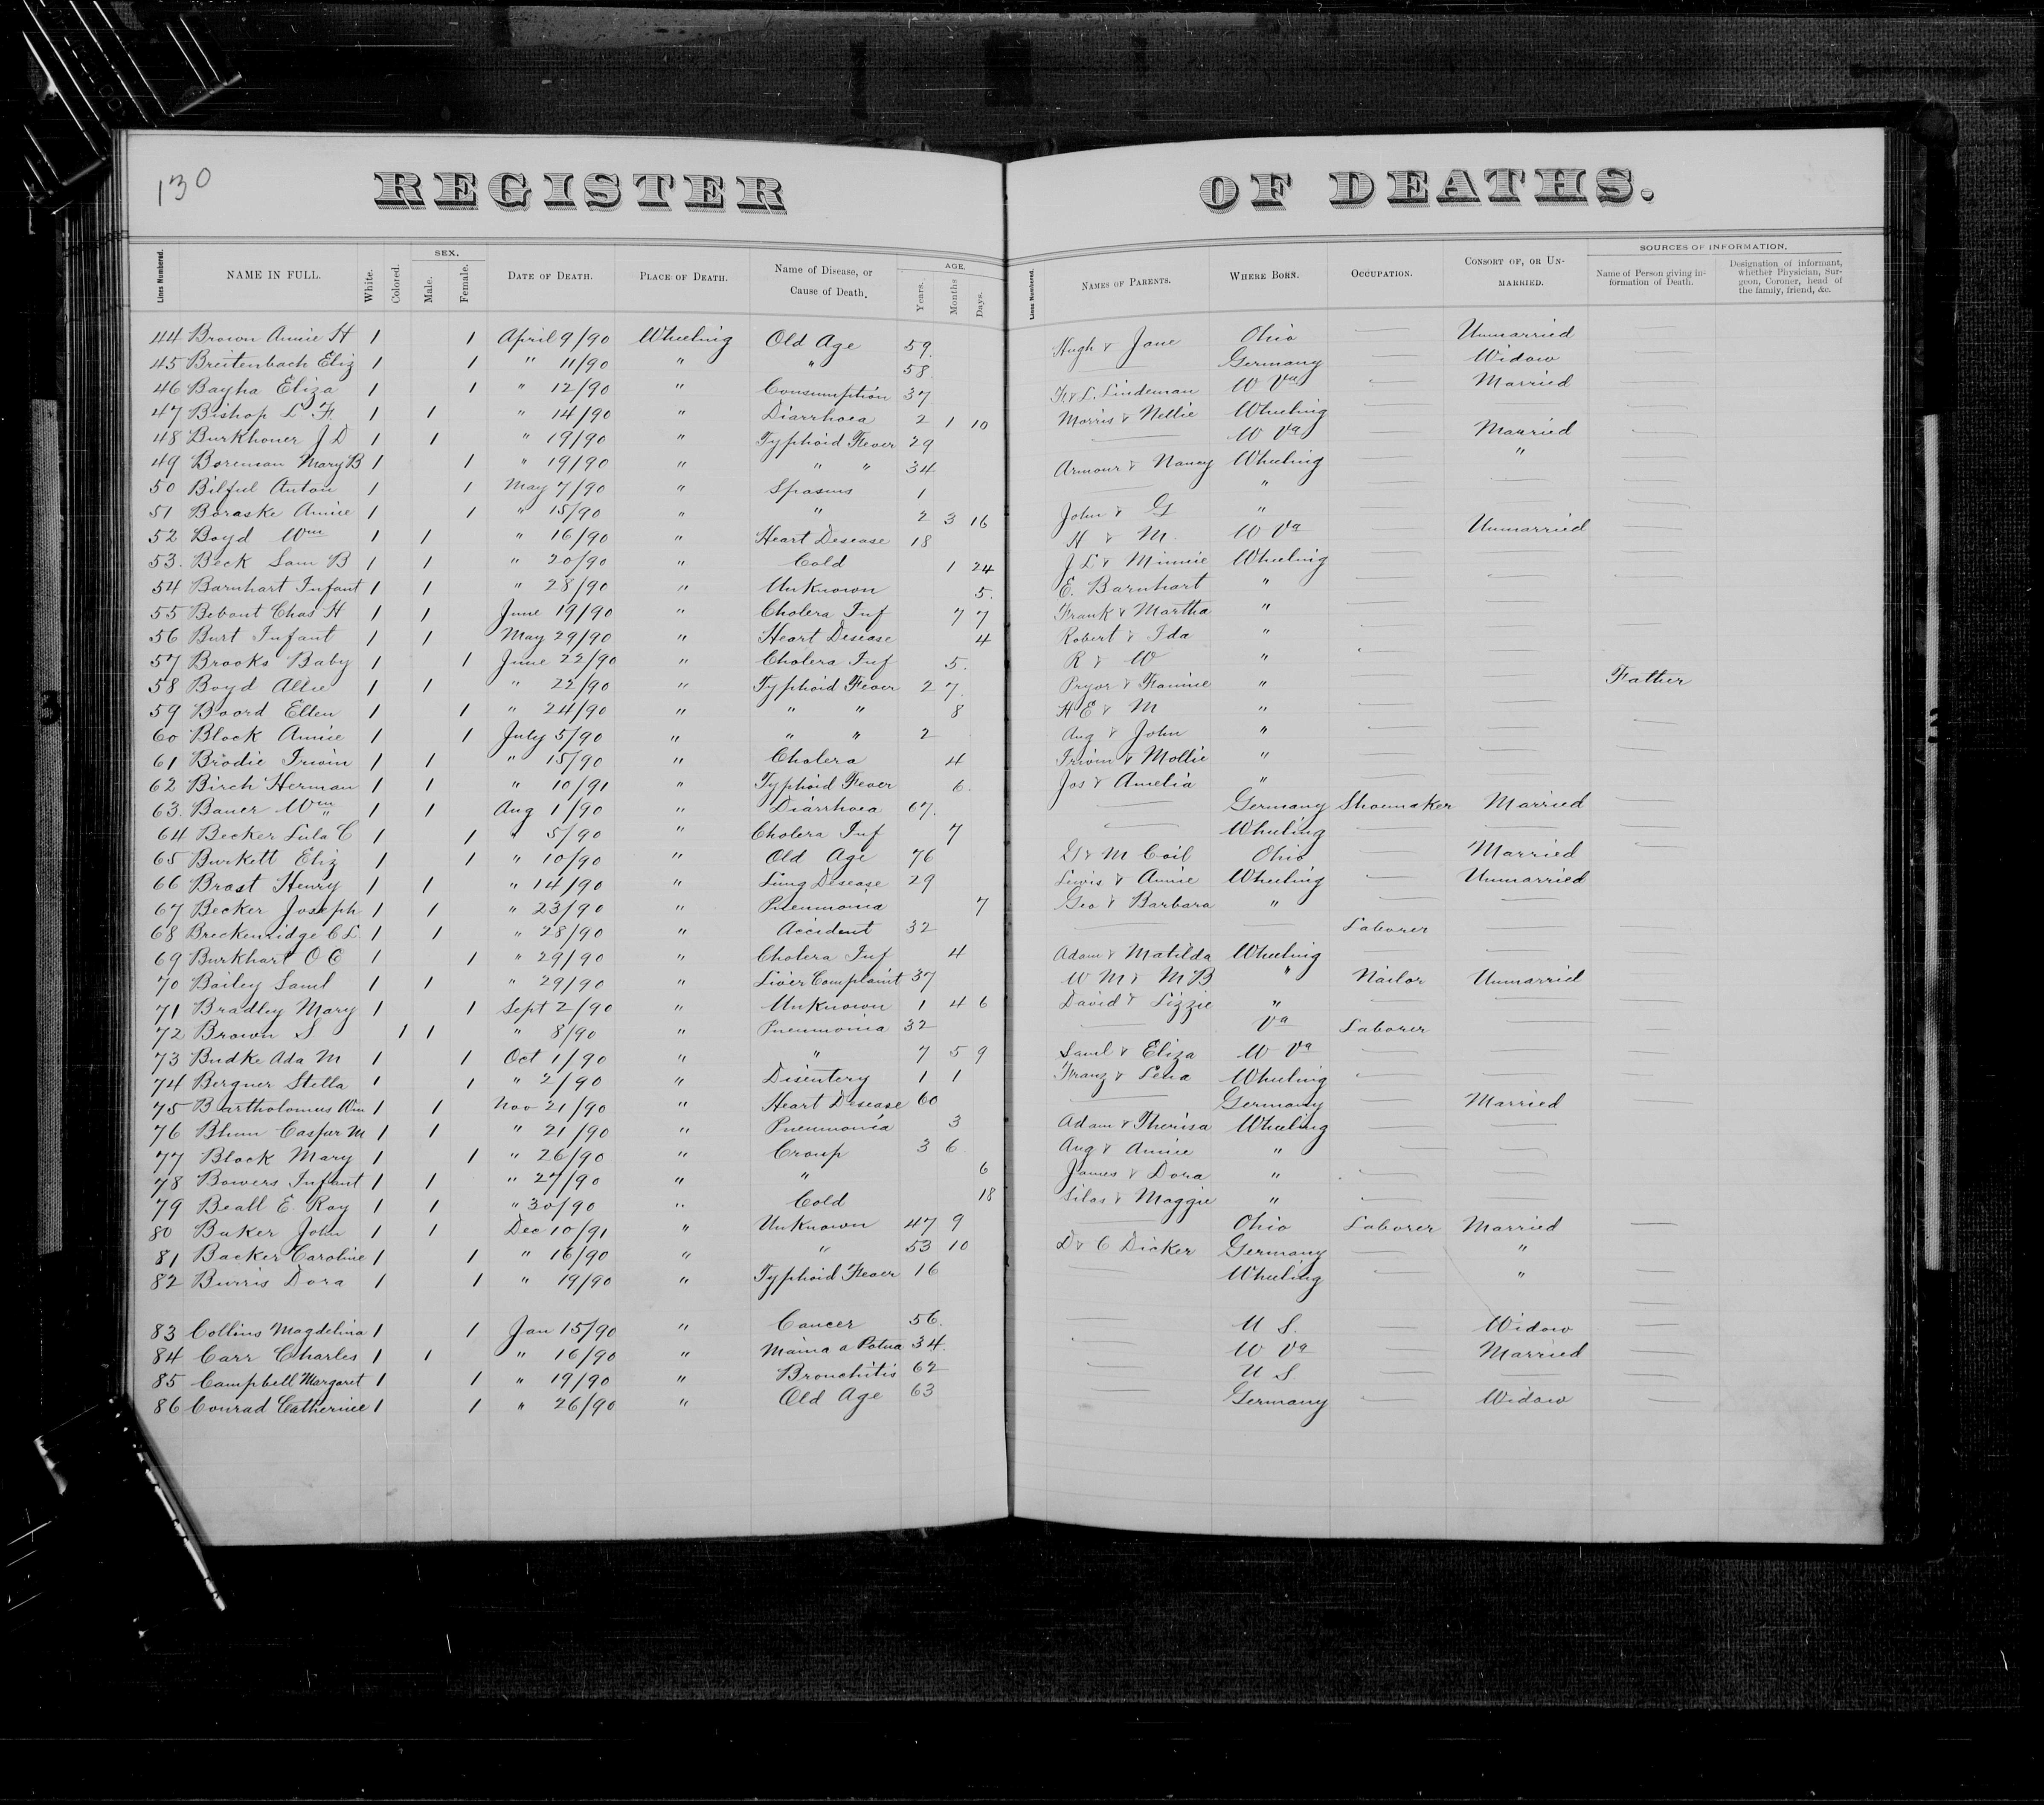 130
REGISTER OF DEATHS.
Lines Numbered. NAME IN FULL. White. Colored. SEX. Male. Female. DATE OF DEATH. PLACE OF DEATH. Name of Disease, or Cause of Death. AGE. Years. Months Days. Lines Numbered. NAMES OF PARENTS. WHERE BORN. OCCUPATION. CONSORT OF, OR UNMARRIED. SOURCES OF INFORMATION. Name of Person giving information of Death. Designation of informant, whether Physician, Surgeon, Coroner, head of the family, friend, &c.
44 Brown Annie H 1 1 April 9/90 Wheeling Old Age 59. Hugh & Jane Ohio — Unmarried —
45 Breitenbach Eliz 1 1 " 11/90 " " 58. — Germany Widow —
46 Bayha Eliza 1 1 " 12/90 " Consumption 37 Fr & L. Lindeman W Va — Married —
47 Bishop L F 1 1 " 14/90 " Diarrhoea 2 1 10 Morris & Nellie Wheeling — —
48 Burkhouer J D 1 1 " 19/90 " Typhoid Fever 29 — W Va — Married —
49 Boreman Mary B 1 1 " 19/90 " " " 34 Armour & Nancy Wheeling — " —
50 Bilful Anton 1 1 May 7/90 " Spasms 1 — " — — —
51 Boraske Annie 1 1 " 15/90 " " 2 3 16 John & G " — —
52 Boyd Wm 1 1 " 16/90 " Heart Desease 18 H & M. W Va Unmarried —
53. Beck Sam B 1 1 " 20/90 " Cold 1 24 J L & Minnie Wheeling — — —
54 Barnhart Infant 1 1 " 28/90 " UnKnown 5. E. Barnhart " — — —
55 Bebout Chas H 1 1 June 19/90 " Cholera Inf 7 7 Frank & Martha " — — —
56 Burt Infant 1 1 May 29/90 " Heart Desease 4 Robert & Ida " — — —
57 Brooks Baby 1 1 June 22/90 " Cholera Inf 5. R & W " — —
58 Boyd Allie 1 1 " 22/90 " Typhoid Fever 2 7. Pryor & Fannie " — — Father
59 Boord Ellen 1 1 " 24/90 " " " 8 H E & M " — —
60 Block Annie 1 1 July 5/90 " " " 2 Aug & John " — — —
61 Brodie Irwin 1 1 " 15/90 " Cholera 4 Irwin & Mollie " — — —
62 Birch Herman 1 1 " 10/91 " Typhoid Fever 6. Jos & Amelia " — — —
63. Bauer Wm 1 1 Aug 1/90 " Diarrhoea 67. — Germany Shoemaker Married —
64 Becker Lula C 1 1 " 5/90 " Cholera Inf 7 — Wheeling — — —
65 Burkett Eliz 1 1 " 10/90 " Old Age 76 G & M Coil Ohio — Married —
66 Brast Henry 1 1 " 14/90 " Lung Desease 29 Lewis & Annie Wheeling — Unmarried
67 Becker Joseph 1 1 " 23/90 " Pneumonia 7 Geo & Barbara " — —
68 Breckenridge C L. 1 1 " 28/90 " Accident 32 — — Laborer —
69 Burkhart O E 1 1 " 29/90 " Cholera Inf 4 Adam & Matilda Wheeling — —
70 Bailey Saml 1 1 " 29/90 " Liver Complaint 37 W M & M B " Nailor Unmarried
71 Bradley Mary 1 1 Sept 2/90 " UnKnown 1 4 6 David & Lizzie " — —
72 Brown S 1 1 " 8/90 " Pneumonia 32 — Va Laborer —
73 Budke Ada M 1 1 Oct 1/90 " " 7 5 9 Saml & Eliza W Va — —
74 Bergner Stella 1 1 " 2/90 " Disentery 1 1 Franz & Lena Wheeling — —
75 Bartholomus Wm 1 1 Nov 21/90 " Heart Desease 60 — Germany — Married
76 Blum Caspar M 1 1 " 21/90 " Pneumonia 3 Adam & Therisa Wheeling — —
77 Block Mary 1 1 " 26/90 " Croup 3 6 Aug & Annie " — —
78 Bowers Infant 1 1 " 27/90 " " 6 James & Dora " — —
79 Beall E. Roy 1 1 " 30/90 " Cold 18 Silas & Maggie " — —
80 Baker John 1 1 Dec 10/91 " UnKnown 47 9 — Ohio Laborer Married —
81 Backer Caroline 1 1 " 16/90 " " 53 10 D & C Dicker Germany — " —
82 Burris Dora 1 1 " 19/90 " Typhoid Fever 16 — Wheeling — " —
83 Collins Magdelina 1 1 Jan 15/90 " Cancer 56. — U S. — Widow —
84 Carr Charles 1 1 " 16/90 " Maina a Potua 34. — W Va — Married —
85 Campbell Margaret 1 1 " 19/90 " Bronchitis 62 — U S. — — —
86 Conrad Catherine 1 1 " 26/90 " Old Age 63 — Germany — Widow —